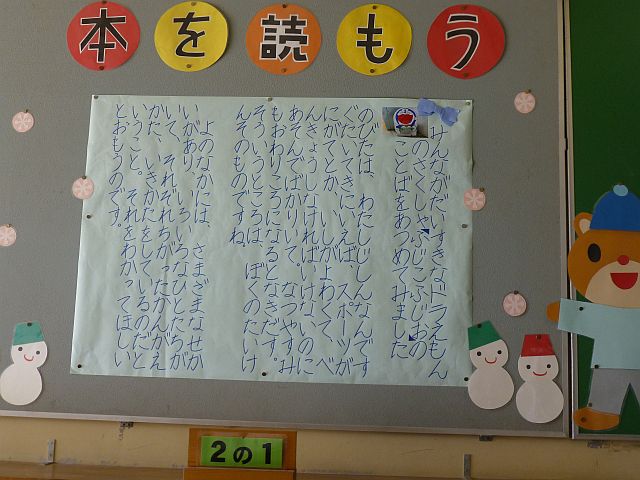 本を読もう
みんながだいすきなドラえもん
のさくしゃふじこふじおの
ことばをあつめてみました
のびたは、わたしじしんなんです
ぐたいてきにいえば、スポーツが
にがてとか、いしがよわくて、べ
んきょうしなければいけないのに
あそんでばかりいて、なつやすみ
もおわりころになるとなきだす。
そういうところは、ぼくのたいけ
んそのものですね
よのなかには、さまざまなせか
いがあり、いろいろなひとたちが
いて、それぞれちがったかんがえ
かた、いきかたをしているのだと
いうこと。それをわかってほしい
とおもうのです。
2の1